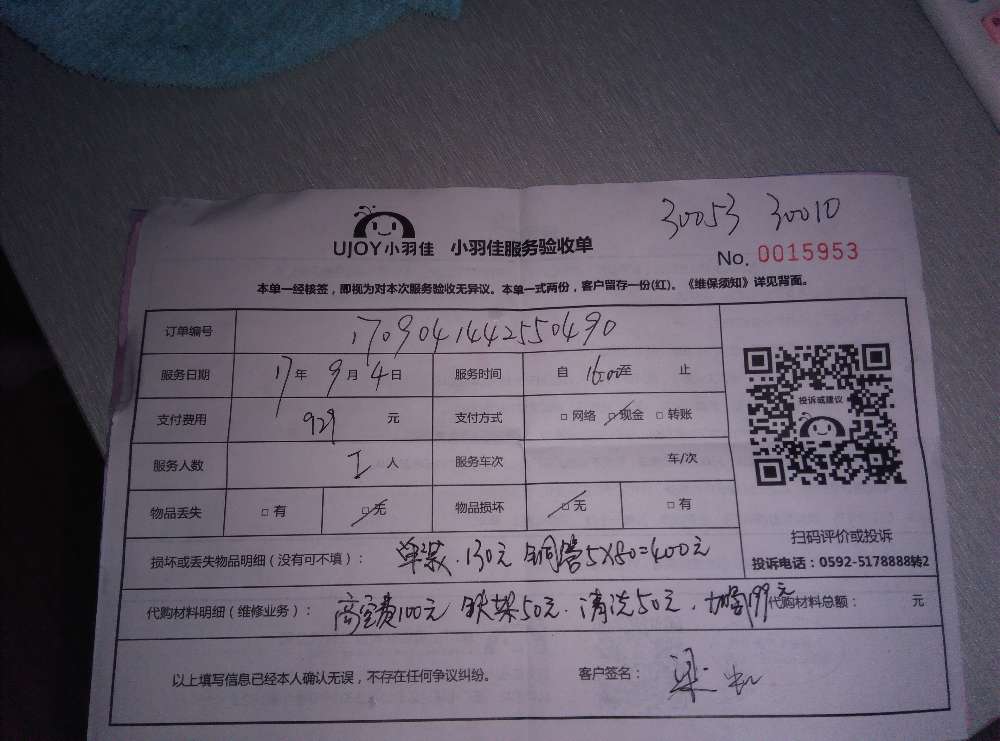 30053 30010
UJOY小羽佳 小羽佳服务验收单
No. 0015953
本单一经核签，即视为对本次服务验收无异议。本单一式两份，客户留存一份(红)。《维保须知》详见背面。
订单编号 170904144255049​0
服务日期 17年 9月 4日 服务时间 自 16:00至 止
支付费用 929 元 支付方式 □ 网络 □ 现金 □ 转账
服务人数 人 服务车次 车/次
物品丢失 □ 有 □ 无 物品损坏 □ 无 □ 有
投诉或建议
扫码评价或投诉
投诉电话：0592-5178888转2
损坏或丢失物品明细（没有可不填）： 单装.130元 铜管5X80=400元
代购材料明细（维修业务）： 高空费100元 铁架50元.清洗50元. 199元 代购材料总额： 元
以上填写信息已经本人确认无误，不存在任何争议纠纷。 客户签名： 梁